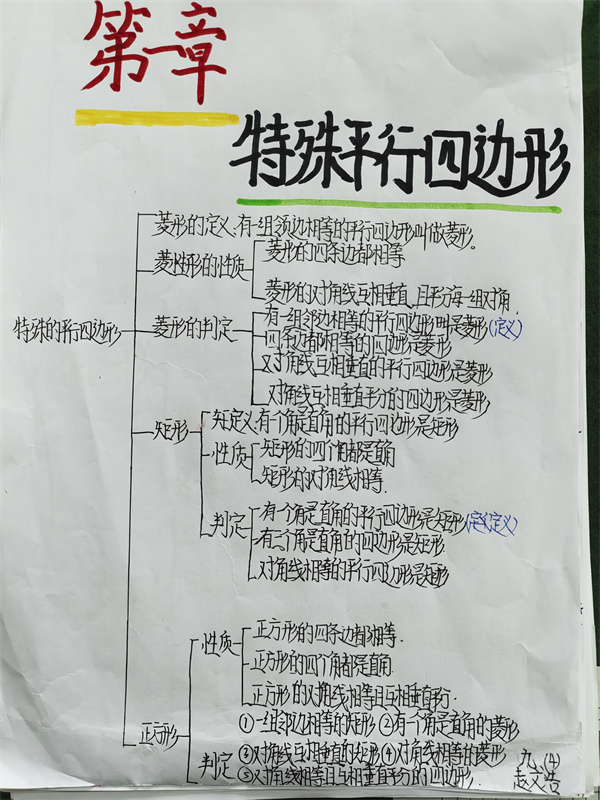 第一章
特殊平行四边形
菱形的定义:有一组邻边相等的平行四边形叫做菱形。
菱形的性质
菱形的四条边都相等
菱形的对角线互相垂直,且平分每一组对角.
特殊的平行四边形
菱形的判定
有一组邻边相等的平行四边形叫是菱形(定义)
四条边都相等的四边形是菱形
对角线互相垂直的平行四边形是菱形
对角线互相垂直平分的四边形是菱形
矩形
矩定义:有个角是直角的平行四边形是矩形
性质
矩形的四个角都是直角
矩形的对角线相等.
判定
有一个角是直角的平行四边形是矩形(定义)
有三个角是直角的四边形是矩形.
对角线相等的平行四边形是矩形
正方形
性质
正方形的四条边都相等.
正方形的四个角都是直角
正方形的对角线相等且互相垂直平分.
判定
①一组邻边相等的矩形 ②有一个角是直角的菱形
③对角线互相垂直的矩形 ④对角线相等的菱形
⑤对角线相等且互相垂直平分的四边形.
九.(4)
赵文浩